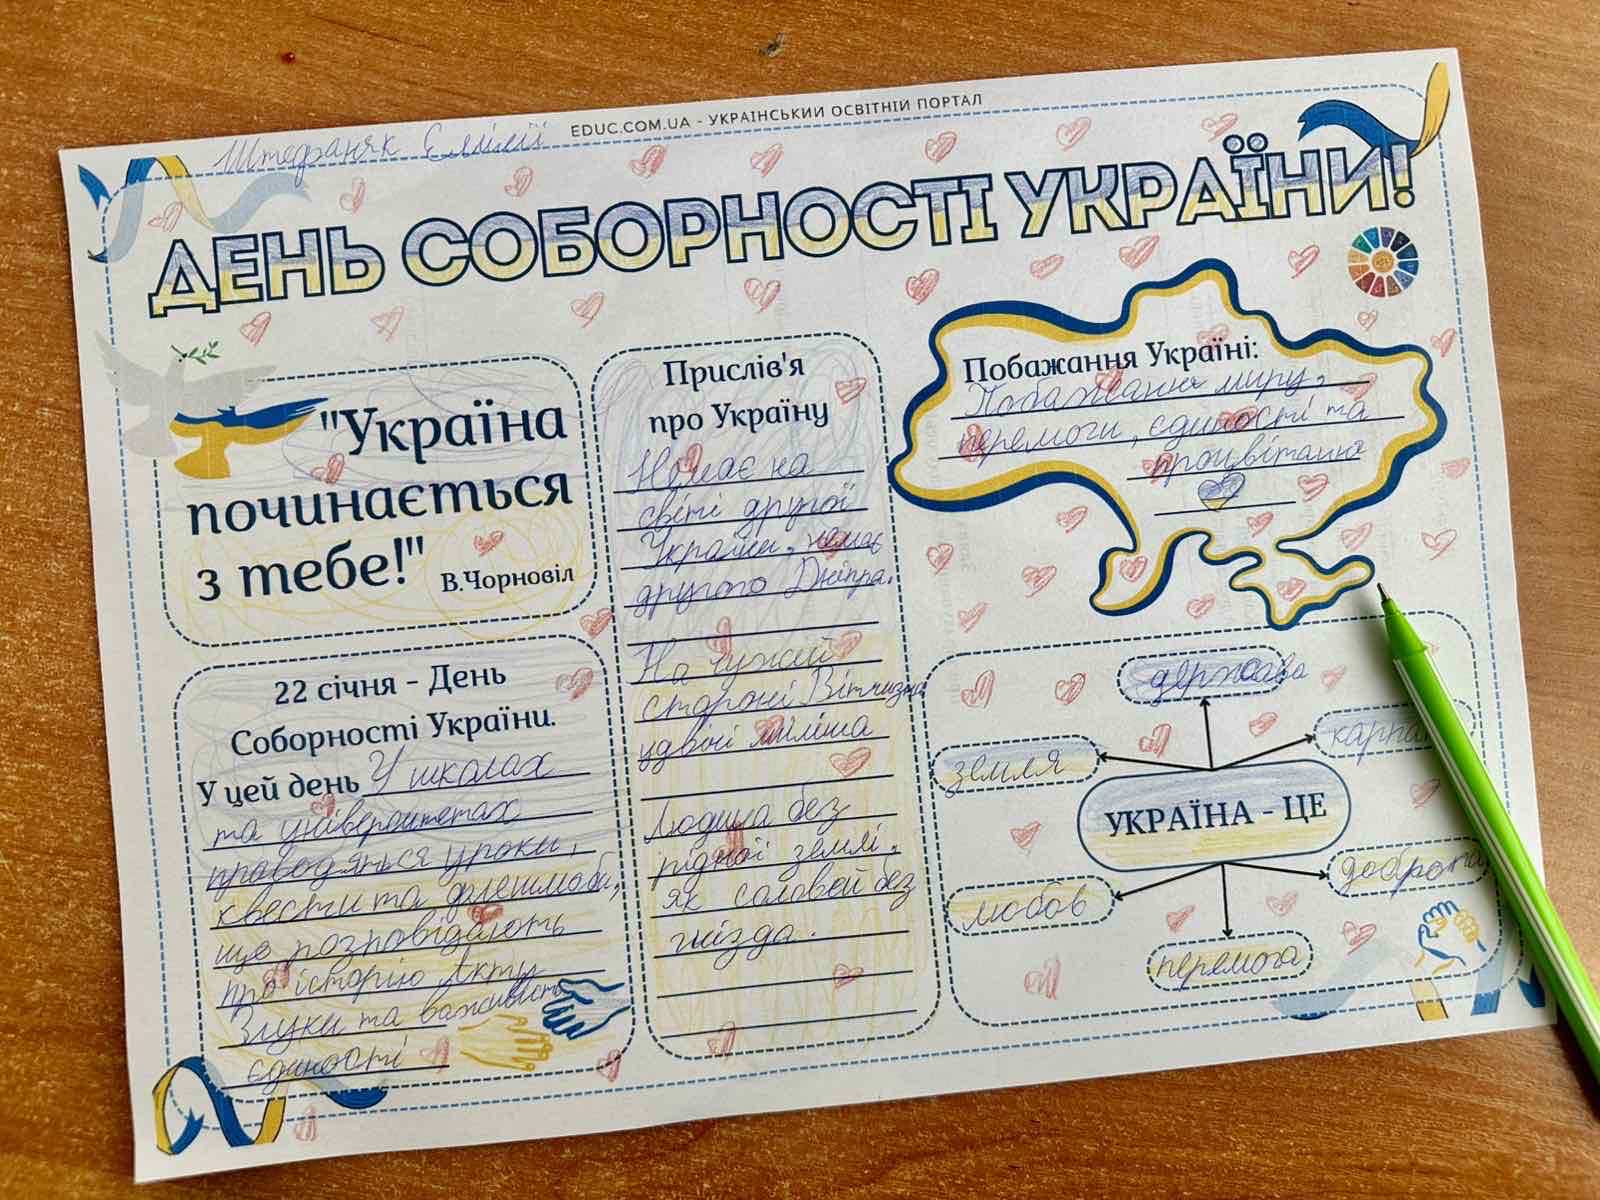 EDUC.COM.UA - УКРАЇНСЬКИЙ ОСВІТНІЙ ПОРТАЛ
Штефаняк Емілії
ДЕНЬ СОБОРНОСТІ УКРАЇНИ!
"Україна
починається
з тебе!"
В.Чорновіл
22 січня - День
Соборності України.
У цей день У школах
та університетах
проводяться уроки,
квести та флешмоби,
що розповідають
про історію Акту
Злуки та важливість
єдиності
Прислів'я
про Україну
Немає на
світі другої
України, немає
другого Дніпра.
На чужій
стороні Вітчизна
удвічі миліша
Людина без
рідної землі,
як соловей без
гнізда.
Побажання Україні:
Побажання миру,
перемоги, єдиності та
процвітання
держава
земля
УКРАЇНА - ЦЕ
доброта
любов
перемога